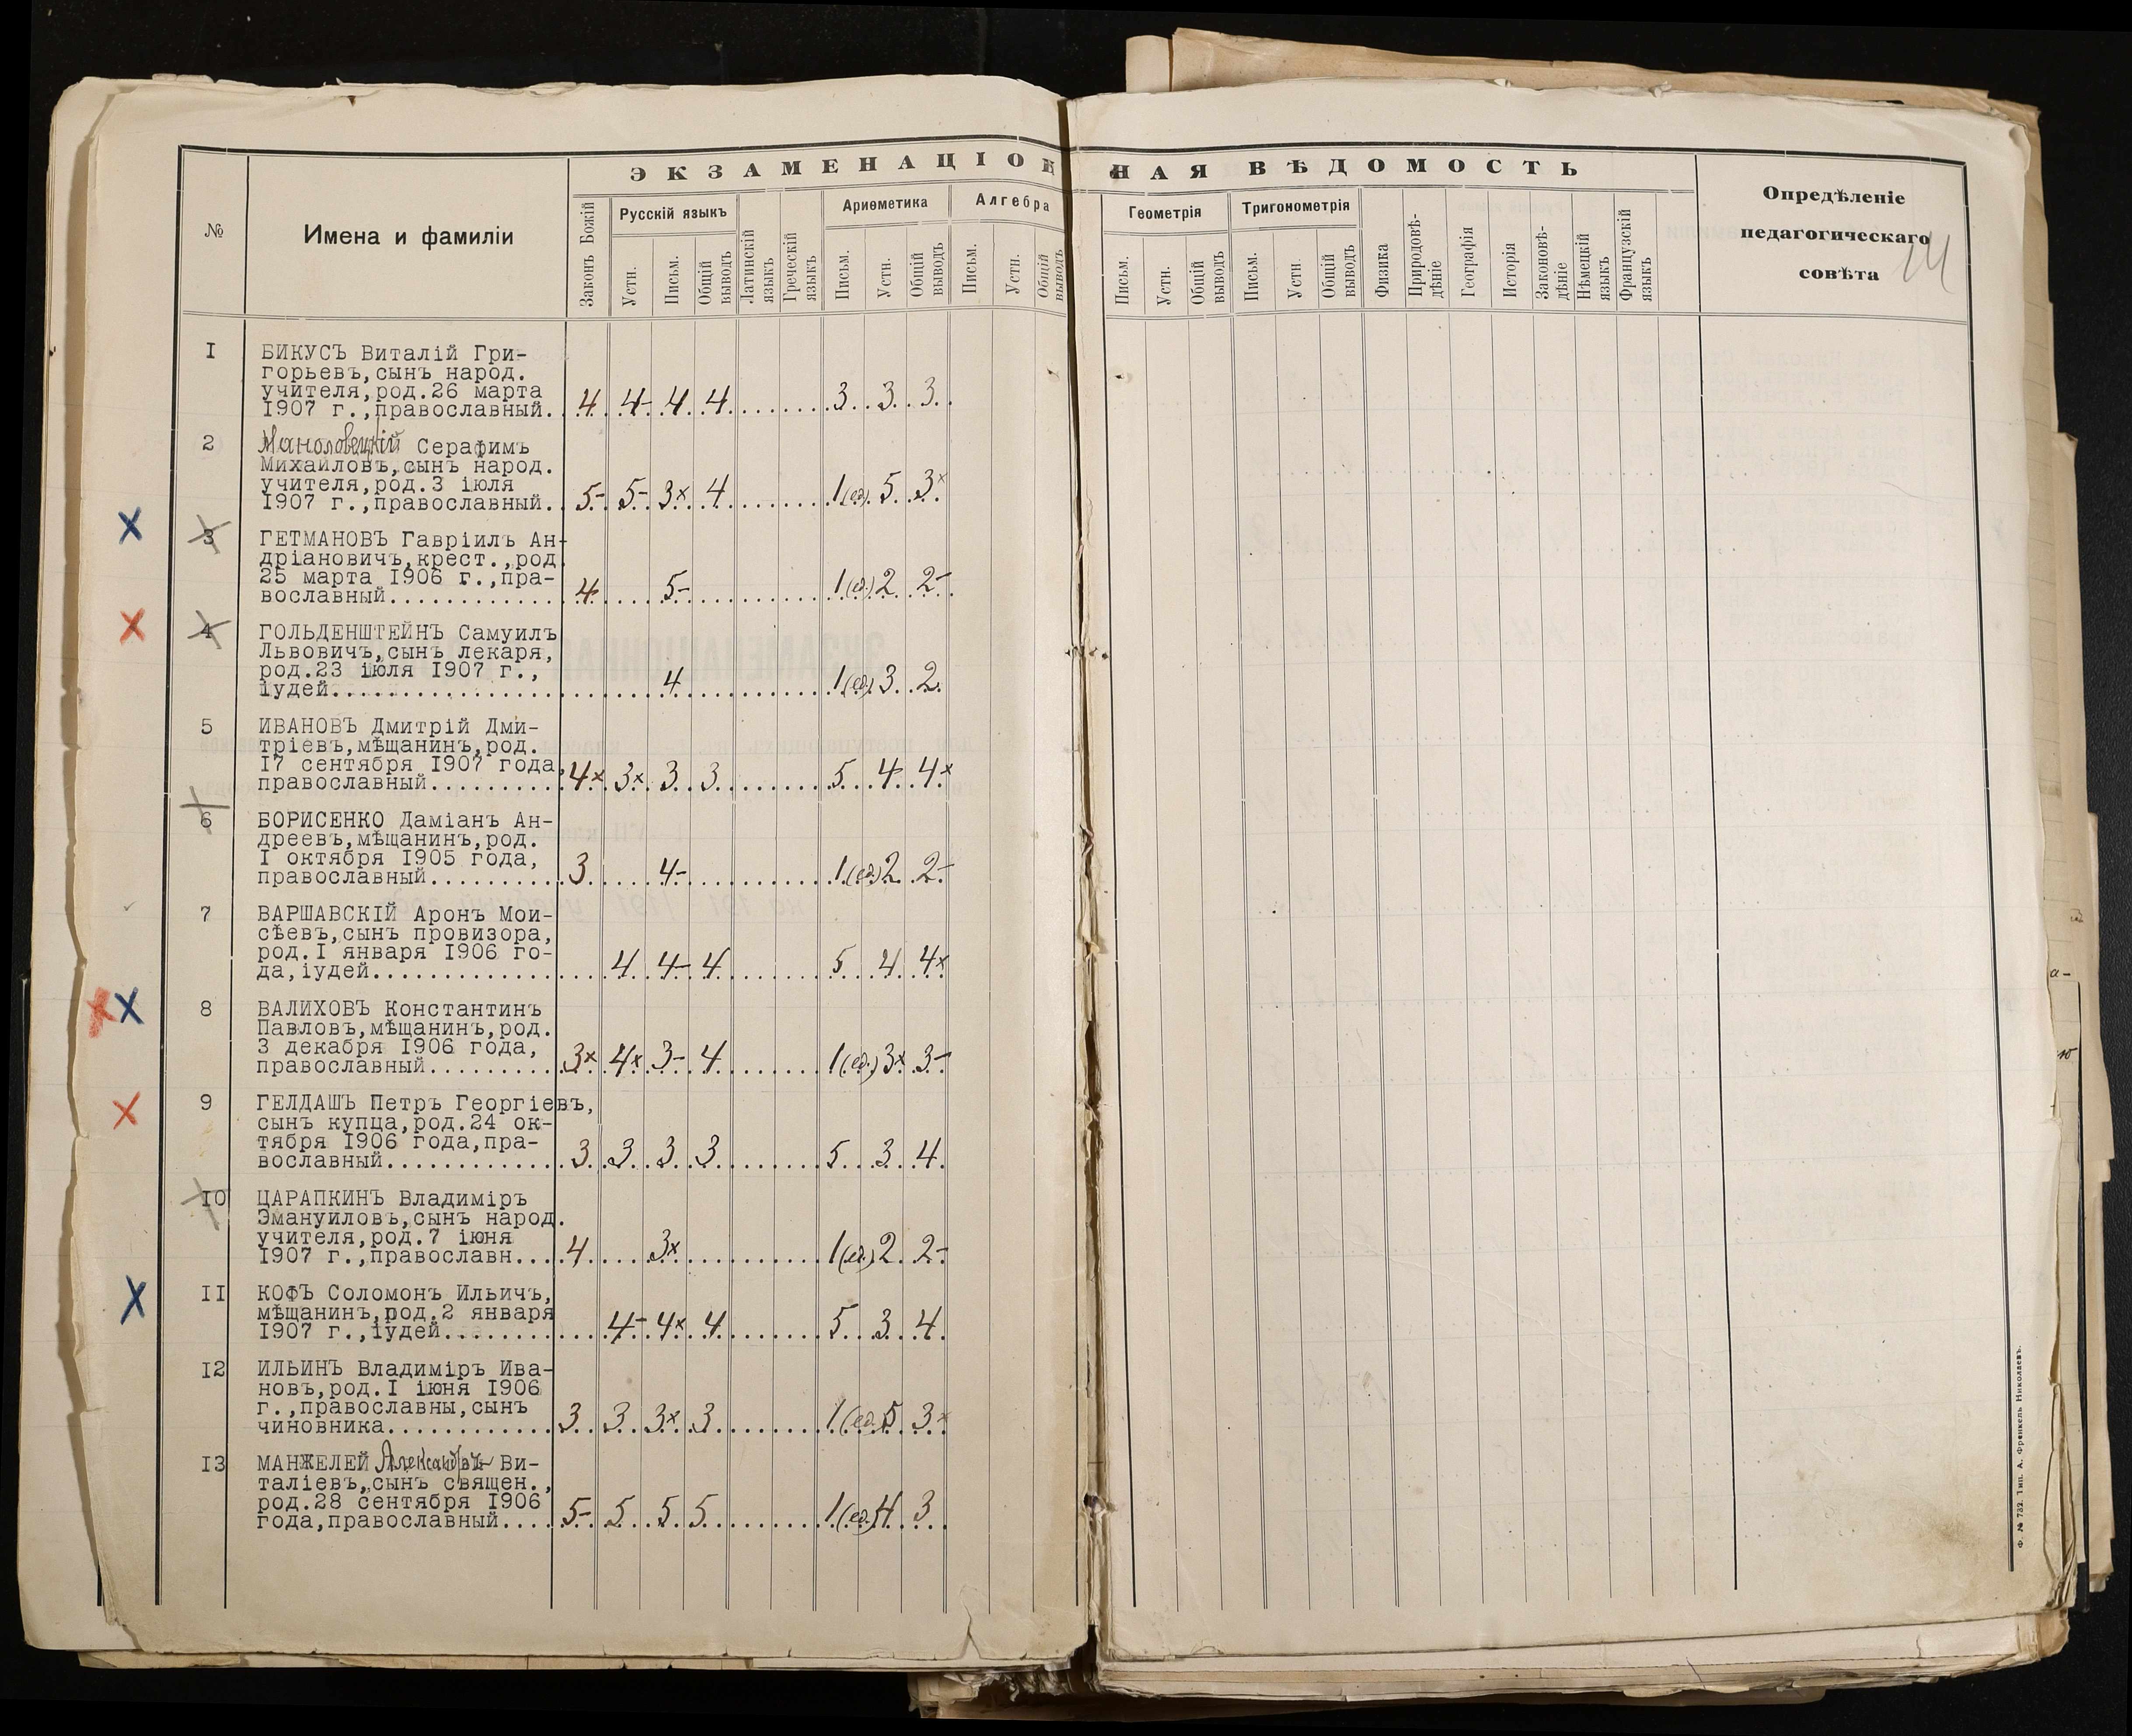 ЭКЗАМЕНАЦІОН НАЯ ВѢДОМОСТЬ
№
Имена и фамиліи
Законъ Божій
Русскій языкъ
Устн.
Письм.
Общій выводъ
Латинскій языкъ
Греческій языкъ
Ариѳметика
Письм.
Устн.
Общій выводъ
Алгебра
Письм.
Устн.
Общій выводъ
Геометрія
Письм.
Устн.
Общій выводъ
Тригонометрія
Письм.
Устн.
Общій выводъ
Физика
Природовѣ-
дѣніе
Географія
Исторія
Законовѣ-
дѣніе
Нѣмецкій языкъ
Французскій языкъ
Опредѣленіе
педагогическаго
совѣта
I БИКУСЪ Виталій Гри-
горьевъ,сынъ народ.
учителя,род.26 марта
I907 г.,православный. 4 4- 4 4 3 3 3
2 Серафимъ
Михайловъ,сынъ народ.
учителя,род.3 іюля
I907 г.,православный.. 5- 5- 3x 4 1(ед). 5 3x
3 ГЕТМАНОВЪ Гавріилъ Ан-
дріановичъ,крест.,род.
25 марта I906 г.,пра-
вославный............ 4 5- 1(ед.) 2 2-
4 ГОЛЬДЕНШТЕЙНЪ Самуилъ
Львовичъ,сынъ лекаря,
род.23 іюля I907 г.,
іудей................ 4 1(ед) 3 2
5 ИВАНОВЪ Дмитрій Дми-
тріевъ,мѣщанинъ,род.
I7 сентября I907 года,
православный.......... 4x 3x 3 3 5 4 4x
6 БОРИСЕНКО Даміанъ Ан-
дреевъ,мѣщанинъ,род.
I октября I905 года,
православный.......... 3 4- 1(ед.) 2 2-
7 ВАРШАВСКІЙ Аронъ Мои-
сѣевъ,сынъ провизора,
род.I января I906 го-
да,іудей.............. 4 4- 4 5 4 4x
8 ВАЛИХОВЪ Константинъ
Павловъ,мѣщанинъ,род.
3 декабря I906 года,
православный.......... 3x 4x 3- 4 1(ед.) 3x 3-
9 ГЕЛДАШЪ Петръ Георгіевъ,
сынъ купца,род.24 ок-
тября I906 года,пра-
вославный............. 3 3 3 3 5 3 4
I0 ЦАРАПКИНЪ Владиміръ
Эмануиловъ,сынъ народ.
учителя,род.7 іюня
I907 г.,православн.... 4 3x 1(ед.) 2 2-
II КОФЪ Соломонъ Ильичъ,
мѣщанинъ,род.2 января
I907 г.,іудей......... 4- 4x 4 5 3 4
I2 ИЛЬИНЪ Владиміръ Ива-
новъ,род.I іюня I906
г.,православны,сынъ
чиновника............. 3 3 3x 3 1(ед.) 5 3x
I3 МАНЖЕЛЕЙ Александръ Ви-
таліевъ,сынъ священ.,
род.28 сентября I906
года,православный.... 5- 5 5 5 1(ед.) 4 3
Ф. № 732. Тип. А. Френкель Николаевъ.